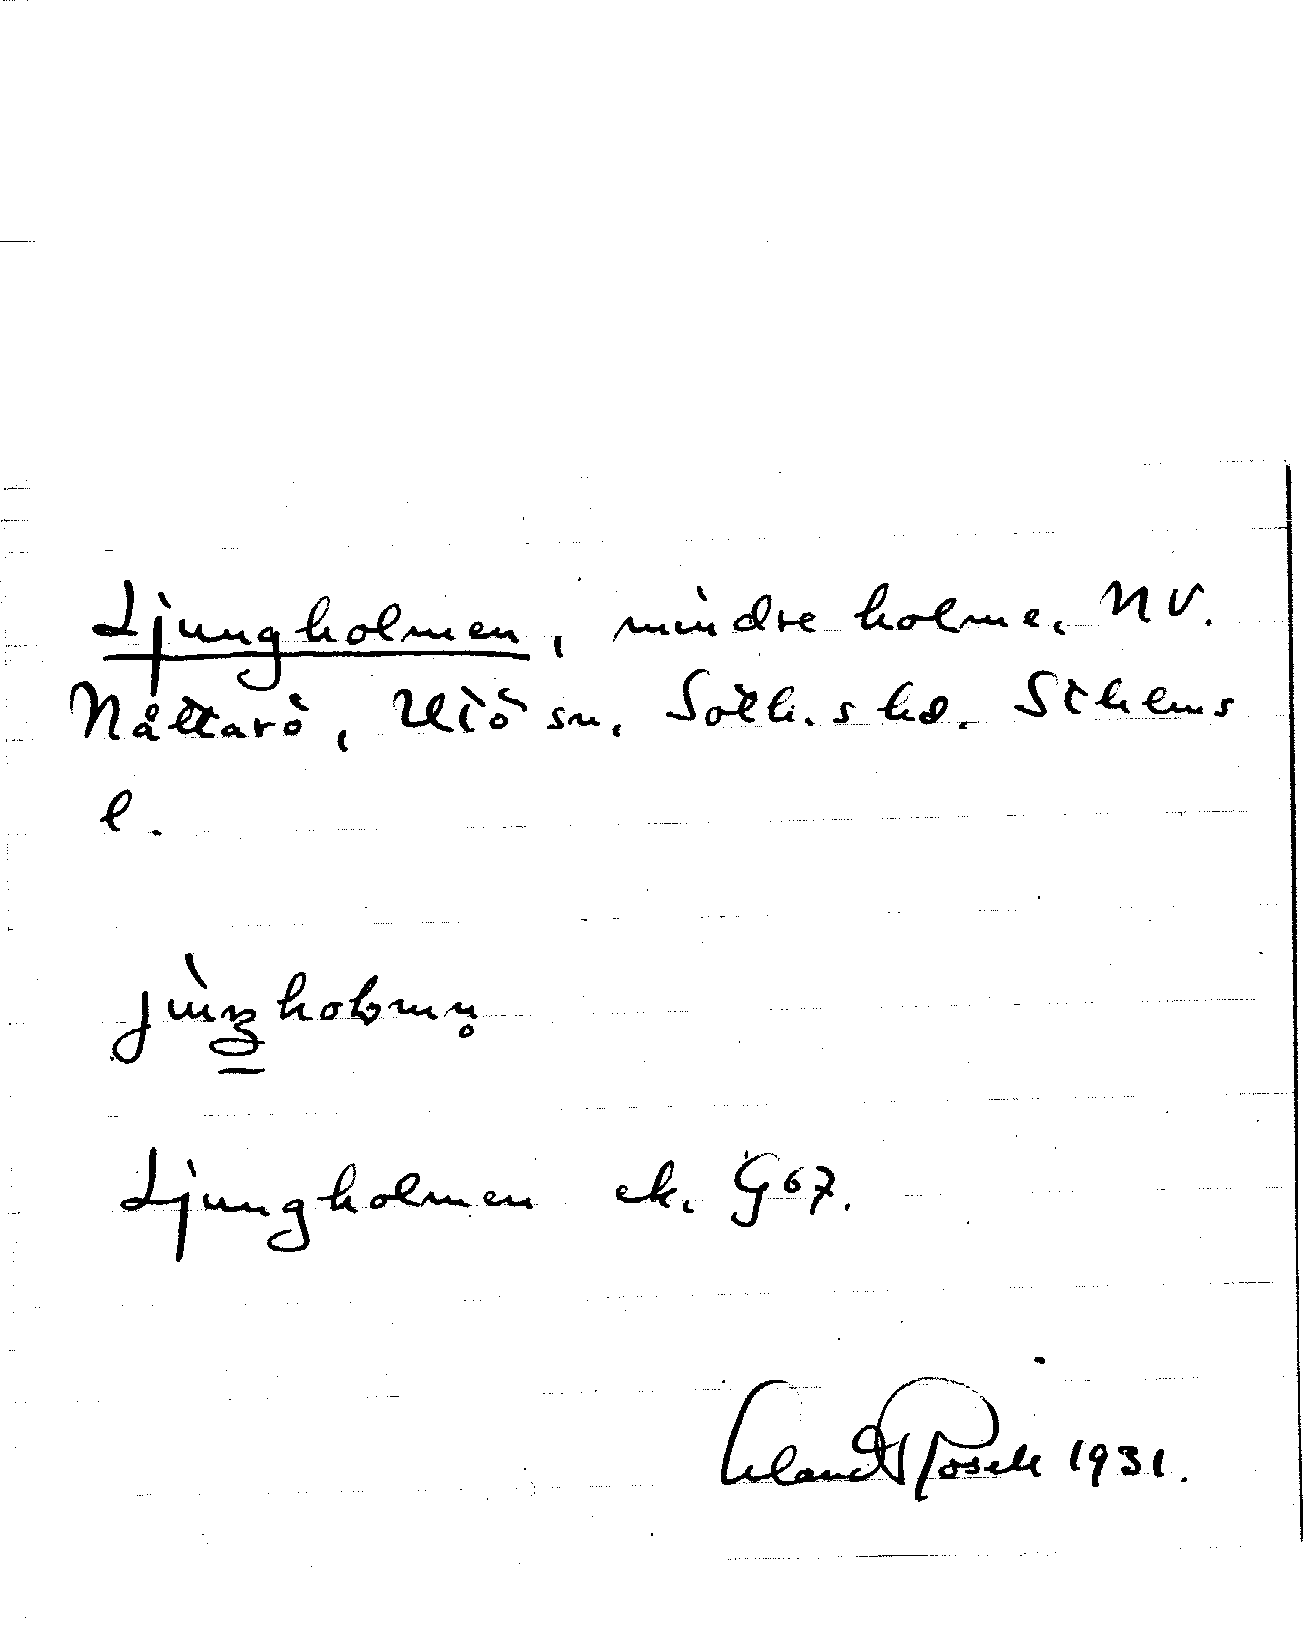 Ljungholmen, mindre holme, NV.
Nåttarö, Utö sn, Soth.s hd. Sthlms
l.
Ljungholmen ek. G67.
Erland Rosell 1931.